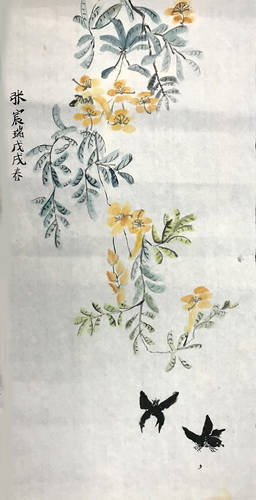 张宸瑞戊戌春